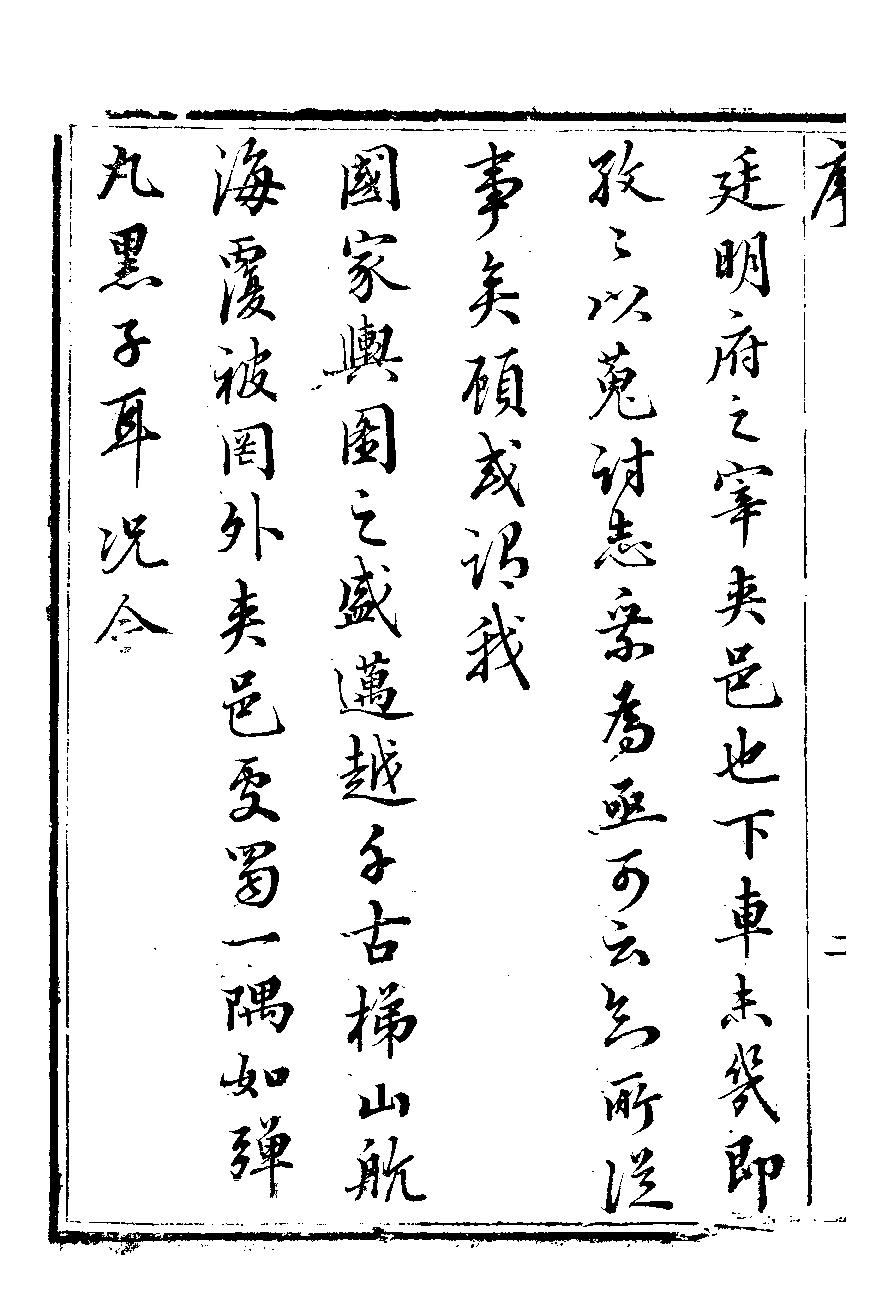 序
二
廷明府之宰夾邑也下車未幾即
孜〻以蒐討志乘為亟可云知所從
事矣顧或謂我
國家輿圖之盛邁越千古梯山航
海覆被罔外夾邑處蜀一隅如彈
丸黑子耳况今